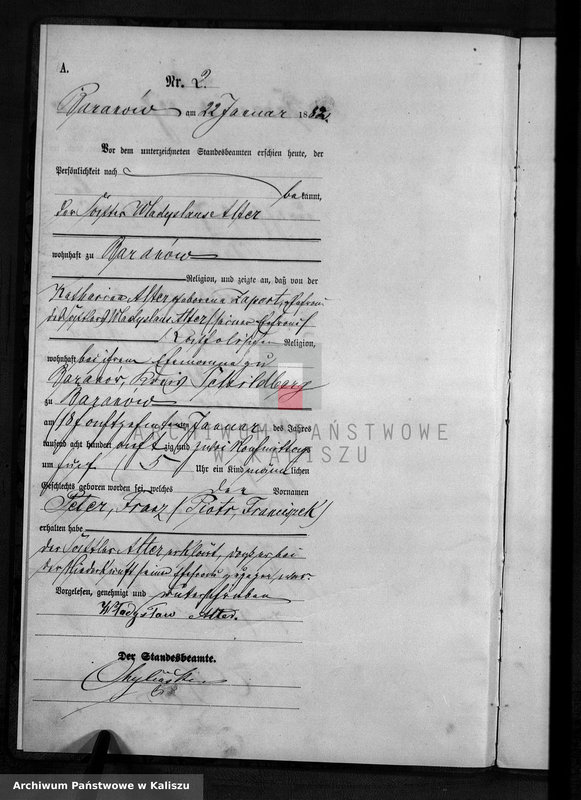 A.
Nr. 2.
Baranów am 22 Januar 1882.
Vor dem unterzeichneten Standesbeamten erschien heute, der
Persönlichkeit nach
bekannt,
der Wladyslaus Alter
wohnhaft zu Baranów
Religion, und zeigte an, daß von der
Katharina Alter geborene Zaport, Ehefrau
des Wladyslaus Alter seiner Ehefrau
katholischer Religion,
wohnhaft bei ihrem Ehemanne zu
Baranów, Kreis Schildberg
zu Baranow
am ten Januar des Jahres
tausend acht hundert achtzig und zwei Nachmittags
um fünf 5 Uhr ein Kind männlichen
Geschlechts geboren worden sei, welches den Vornamen
Peter, Franz (Piotr, Franciszek)
erhalten habe
der Alter erklärt, dass er bei
der Niederkunft seiner Ehefrau zugegen war.
Vorgelesen, genehmigt und unterschrieben
Władysław Alter.
Der Standesbeamte.
ARCHIWUM PAŃSTWOWE
W KALISZU
Archiwum Państwowe w Kaliszu